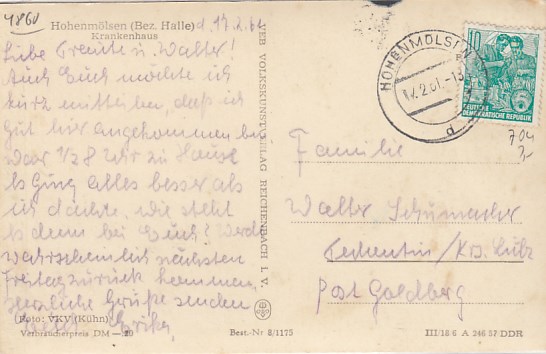 4860
Hohenmölsen (Bez. Halle) d. 17.2.61
Krankenhaus
Liebe Freute u. Walter!
Auch Euch möchte ich
kurz mitteilen, daß ich
gut hir angekommen bin
War 1/2 8 Uhr zu Hause
Es Ging alles besser als
ich dachte. wie steht
es denn bei Euch? Werde
wahrscheinlich nächsten
Freitag zurück kommen,
Herzliche Grüße senden
Erika
(Foto: VKV (Kühn)
Verbraucherpreis DM —20
VER VOLKSKUNSTVERLAG REICHENBACH I. V.
Best.-Nr 8/1175
HOHENMÖLSEN
17.2.61.-13
d
10
5
DEUTSCHE
DEMOKRATISCHE REPUBLIK
704
Familie
Walter Schumacher
Techentin/KD. Lübz
Post Goldberg
III/18/6 A 246 57 DDR